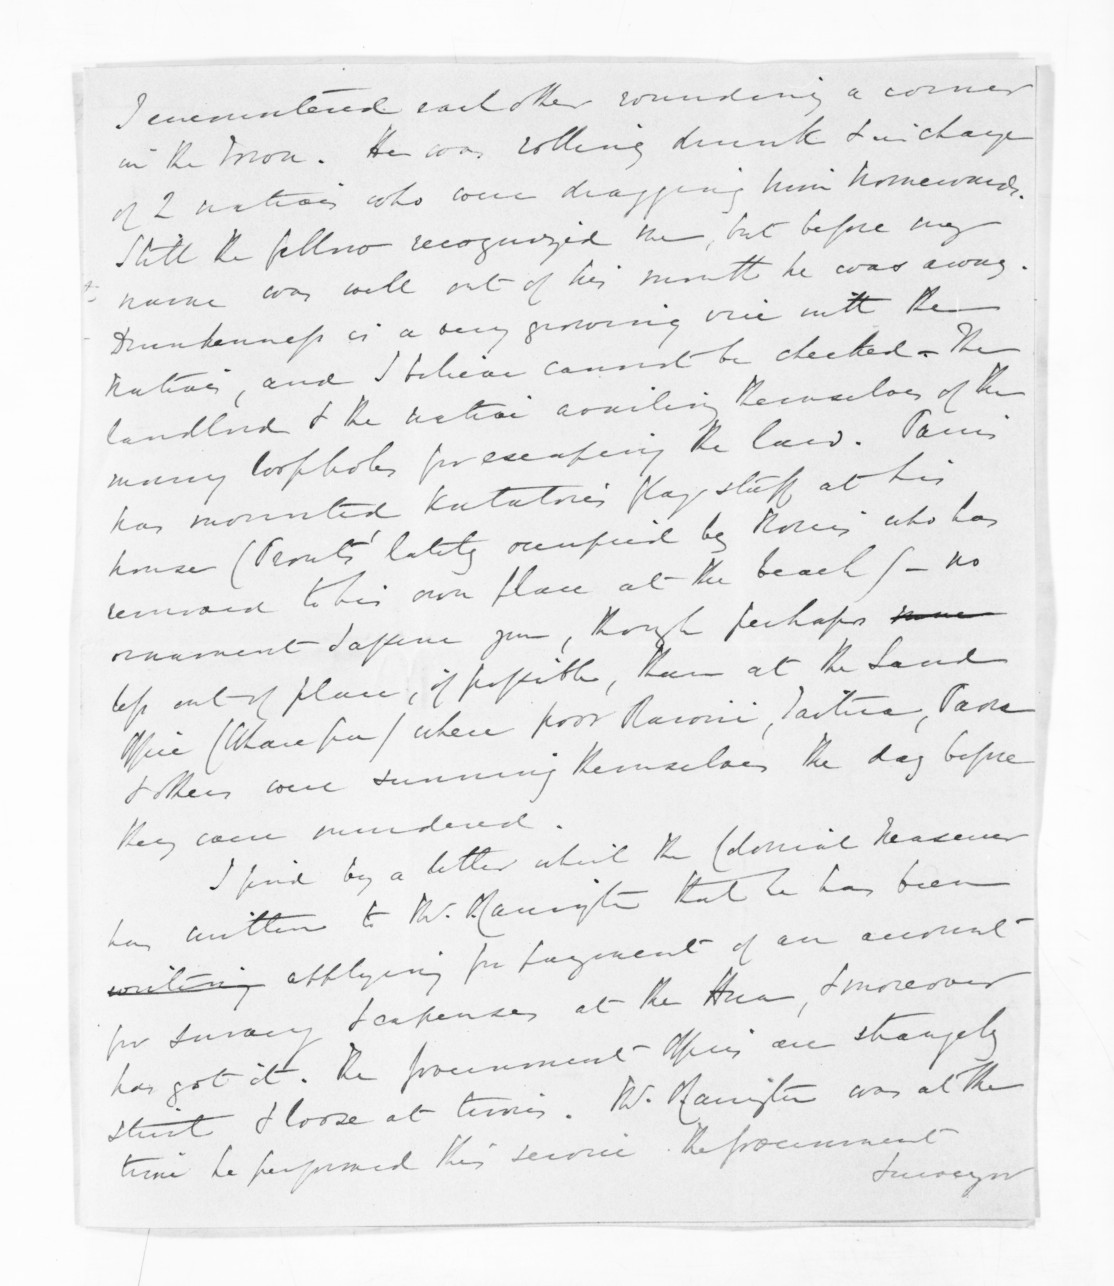 I encountered each other rounding a corner
in the Town. He was rolling drunk & in charge
of 2 natives who were dragging him homewards.
Still the fellow recognized me, but before my
name was well out of his mouth he was away.
Drunkenness is a very growing vice with the
Natives, and I believe cannot be checked – The
landlord & the native availing themselves of the
many loopholes for escaping the law.
has mounted Katatori's flag staff at his
house ( lately occupied by Morris who has
removed to his own place at the beach) – no
ornament, though perhaps
less out of place, if possible, than at the Land
Office (Whare) where poor Raroni,
& others were sunning themselves the day before
they were murdered.
I find by a letter which the Colonial Treasurer
has written to Mr. that he has been
writing applying for payment of an account
for survey expenses at the Hua, & moreover
has got it. The Government Offices are strangely
strict & loose at times. Mr. was at the
time he performed this service the Government
Surveyor